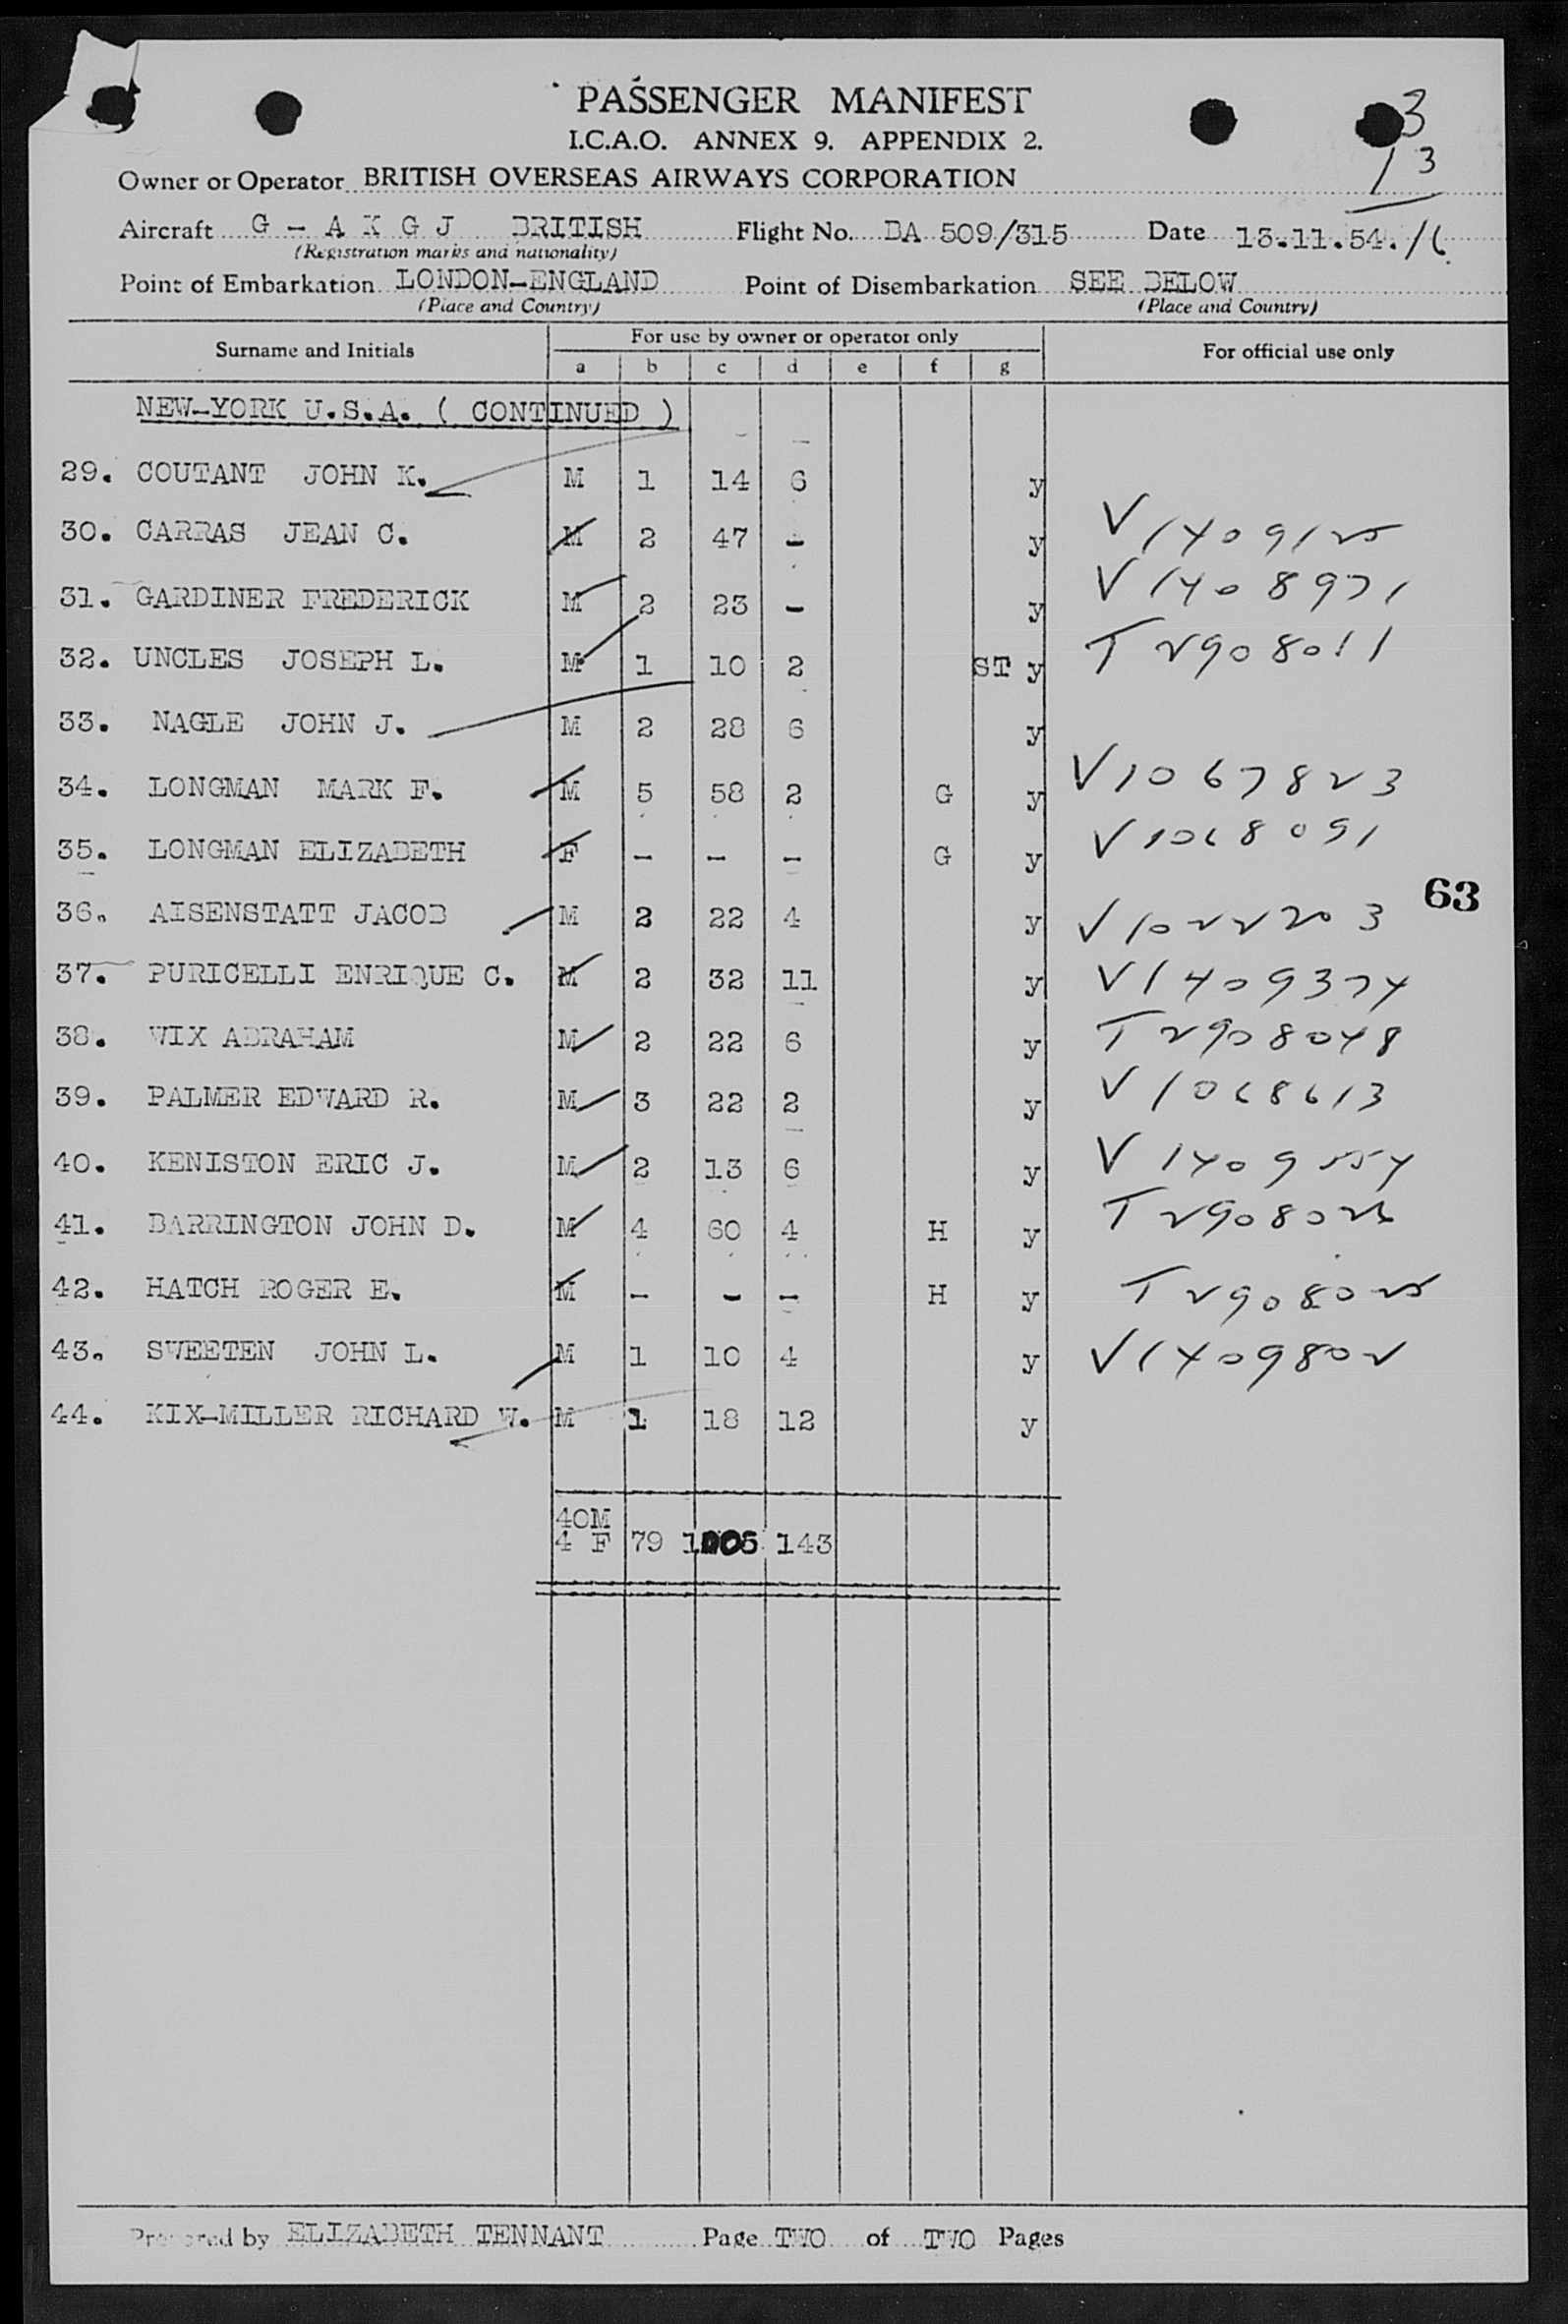 PASSENGER MANIFEST
3
I.C.A.O. ANNEX 9. APPENDIX 2.
13
Owner or Operator BRITISH OVERSEAS AIRWAYS CORPORATION
Aircraft G - A K G J BRITISH Flight No. BA 509/315 Date 13.11.54.
(Registration marks and nationality)
Point of Embarkation LONDON-ENGLAND Point of Disembarkation SEE BELOW
(Place and Country) (Place and Country)
Surname and Initials For use by owner or operator only For official use only
a b c d e f g
NEW-YORK U.S.A. ( CONTINUED )
29. COUTANT JOHN K. M 1 14 6 y
30. CARRAS JEAN C. M 2 47 - y V1409125
31. GARDINER FREDERICK M 2 23 - y V1408971
32. UNCLES JOSEPH L. M 1 10 2 ST y T2908011
33. NAGLE JOHN J. M 2 28 6 y
34. LONGMAN MARK F. M 5 58 2 G y V1067823
35. LONGMAN ELIZABETH F - - - G y V1068091
63
36. AISENSTATT JACOB M 2 22 4 y V1022203
37. PURICELLI ENRIQUE C. M 2 32 11 y V1409374
38. WIX ABRAHAM M 2 22 6 y T2908048
39. PALMER EDWARD R. M 3 22 2 y V1068613
40. KENISTON ERIC J. M 2 13 6 y V1409554
41. BARRINGTON JOHN D. M 4 60 4 H y
42. HATCH ROGER E. M - - - H y T2908025
43. SWEETEN JOHN L. M 1 10 4 y V1409802
44. KIX-MILLER RICHARD W. M 1 18 12 y
40M
4 F 79 1005 143
Prepared by ELIZABETH TENNANT Page TWO of TWO Pages